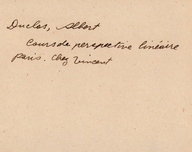 Duclos, Albert
Cours de perspective linéaire
Paris. Chez Vincent